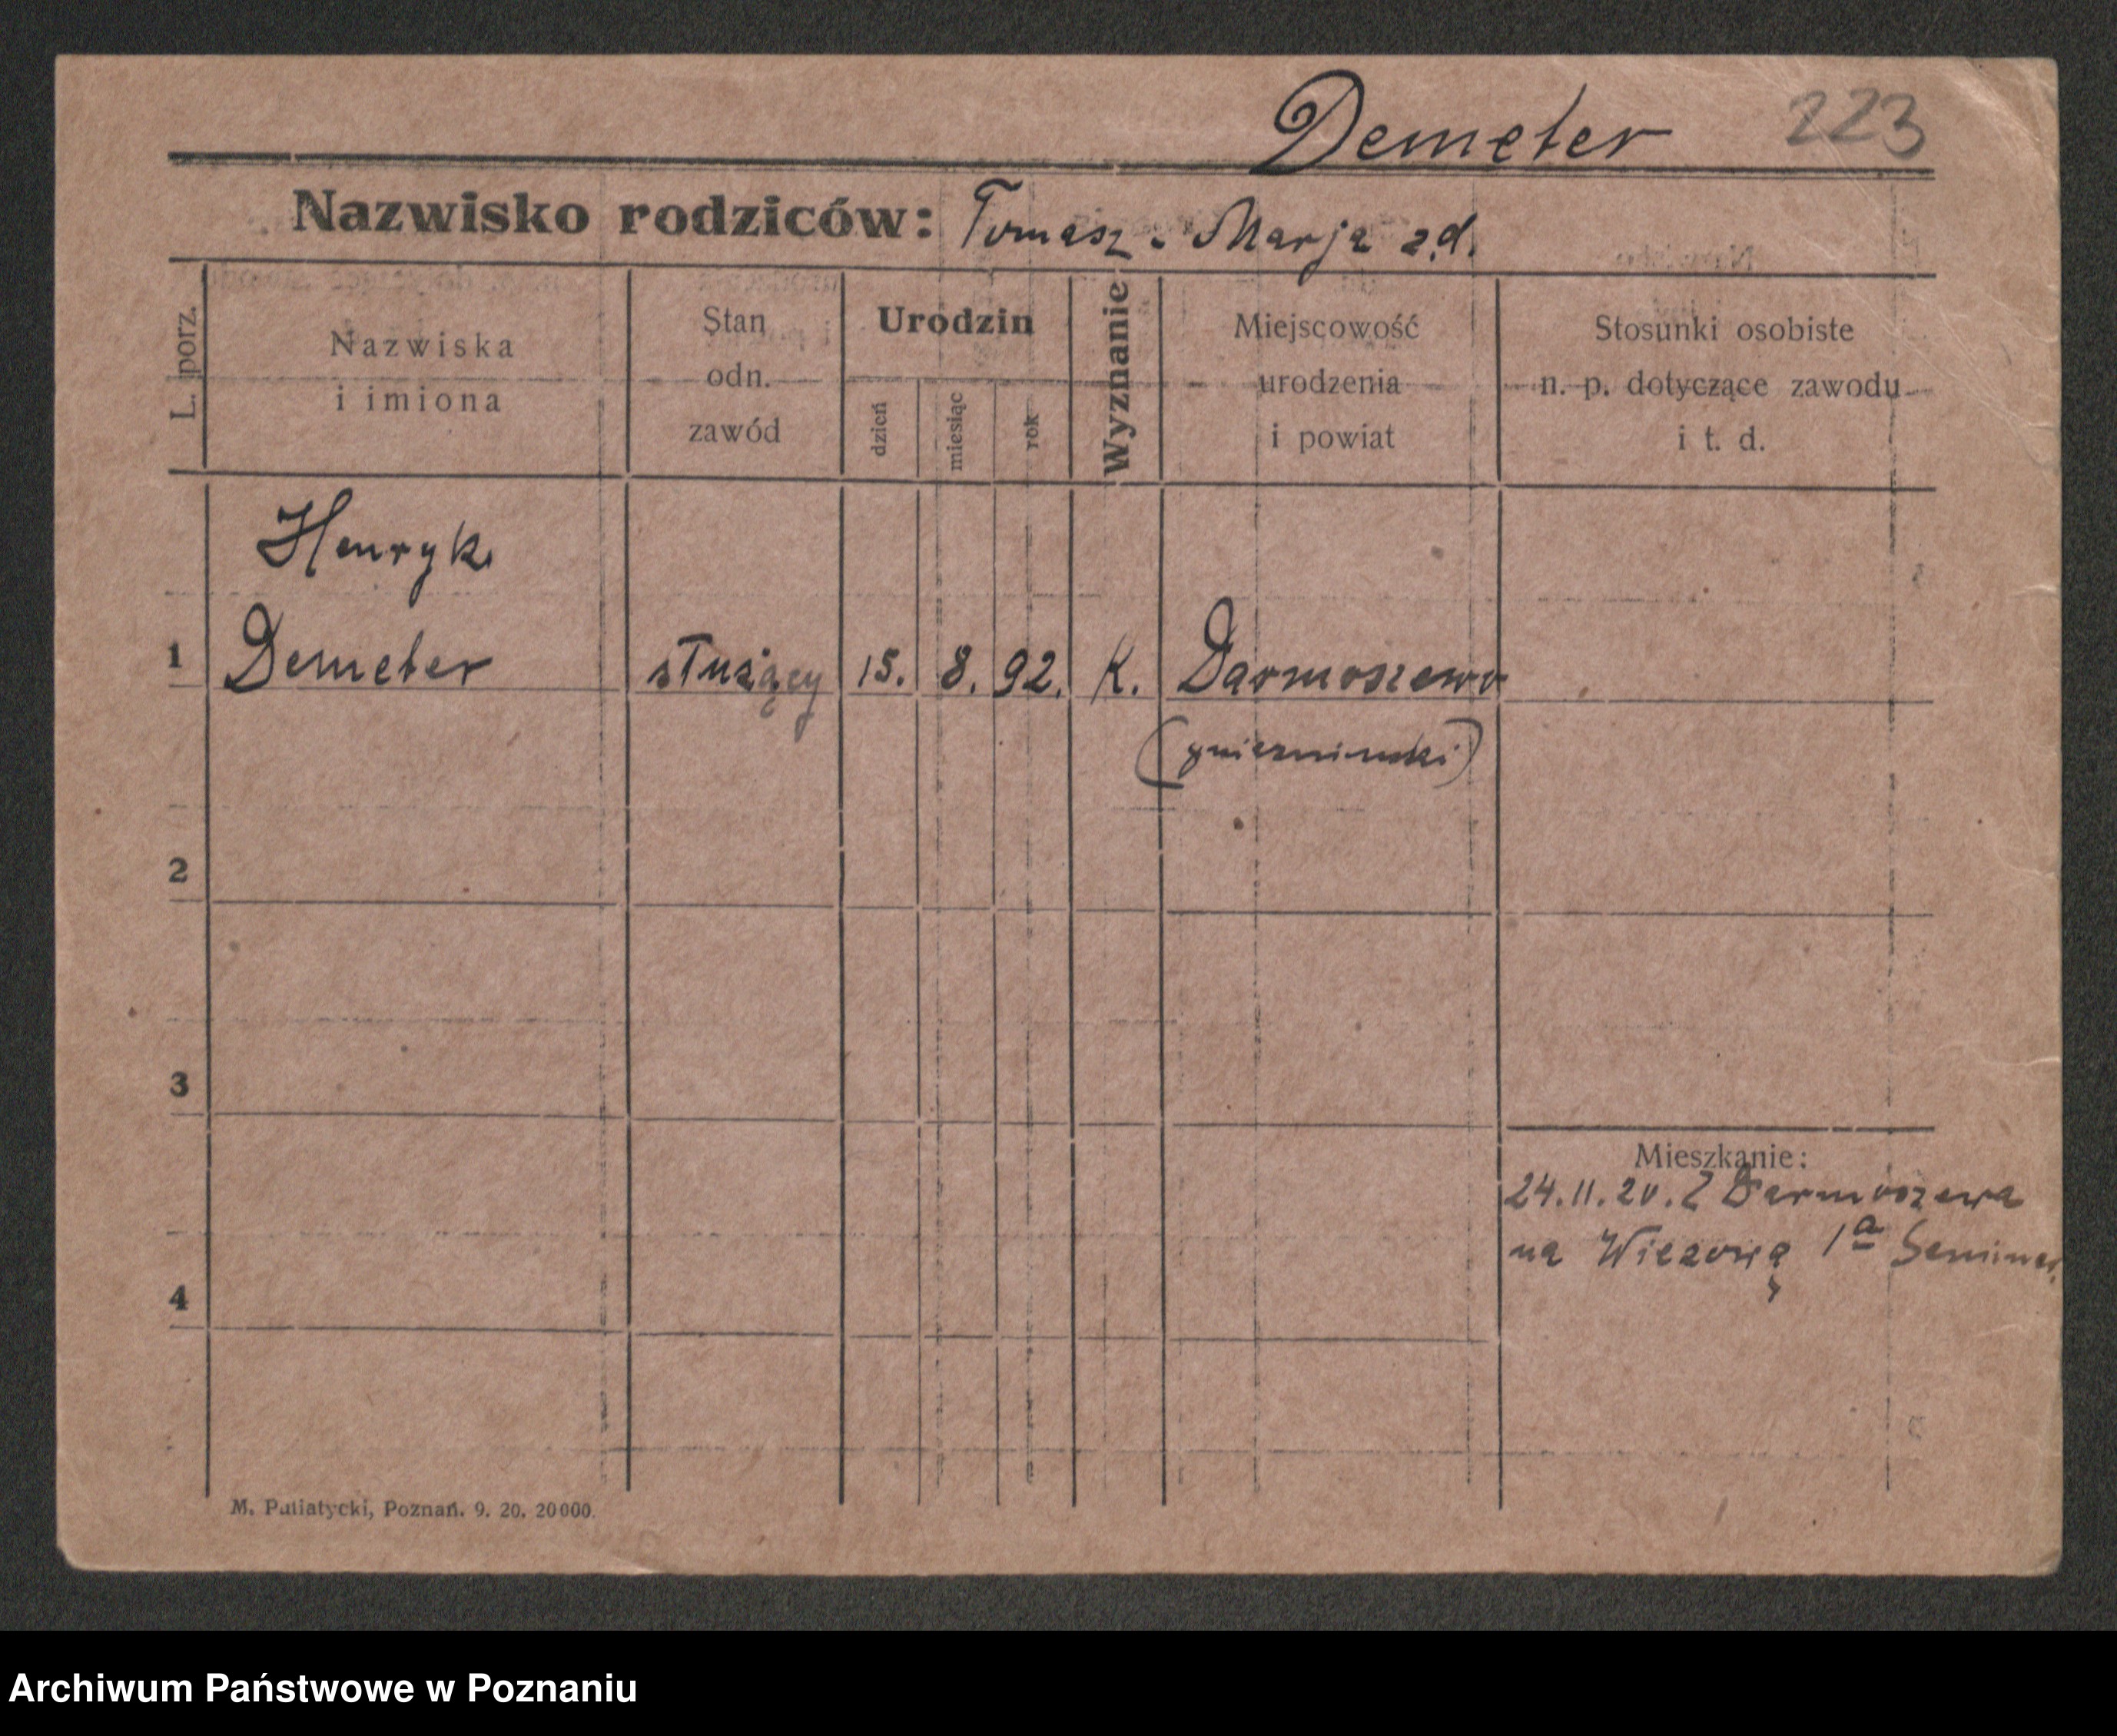 Demeter 223
Nazwisko rodziców: Tomasz i Marja z.d.
L. porz.
Nazwiska
i imiona
Stan
odn.
zawód
Urodzin
dzień
miesiąc
rok
Wyznanie
Miejscowość
urodzenia
i powiat
Stosunki osobiste
n. p. dotyczące zawodu
i t. d.
Henryk
1 Demeter służący 15. 8. 92. K. Darmoszewo
(gnieźnieński)
2
3
Mieszkanie:
24.11.20. Z Darmoszewa
na Wieżową 1a Seminar.
4
M. Putiatycki, Poznań. 9. 20. 20000.
Archiwum Państwowe w Poznaniu